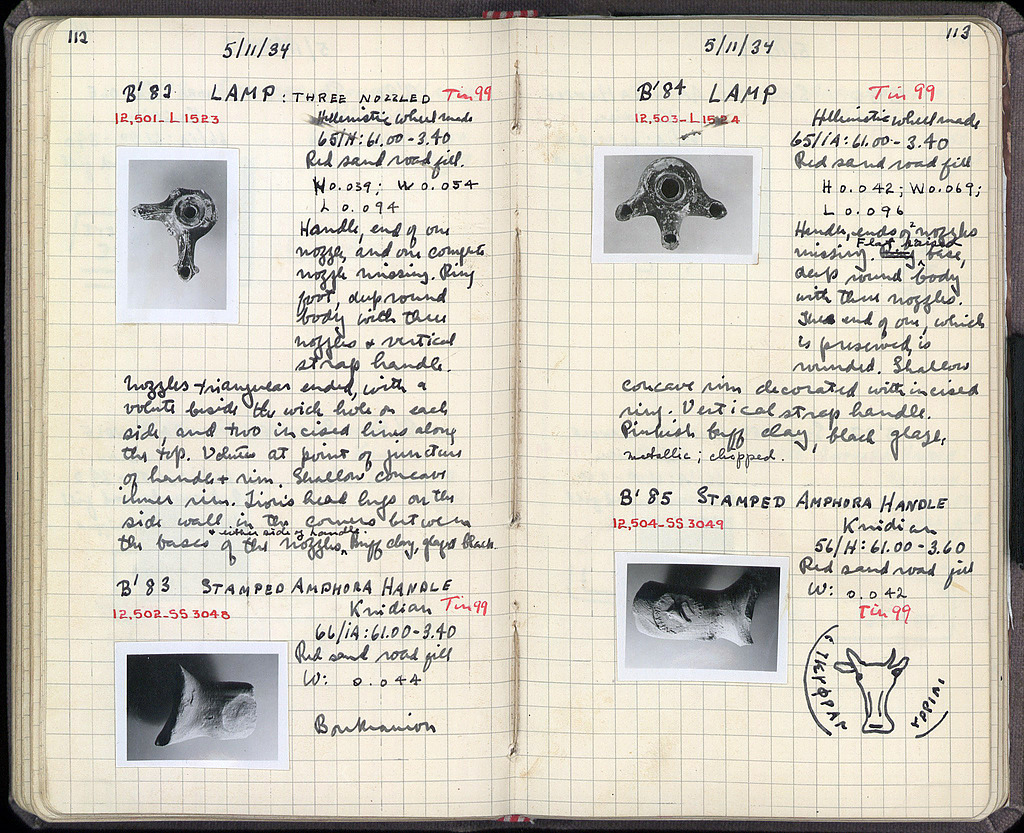 112
5/11/34
B'82 LAMP: THREE NOZZLED Tin 99
12,501-L 1523
Hellenistic wheel made
65/H: 61.00-3.40
Red sand road fill.
H 0.039; W 0.054
L 0.094
Handle, end of one
nozzle, and one complete
nozzle missing. Ring
foot, deep round
body with three
nozzles + vertical
strap handle.
Nozzles triangular ended, with a
volute beside the wick hole on each
side, and two incised lines along
the top. Volutes at point of juncture
of handle + rim. Shallow concave
inner rim. Lion's head lugs on the
side wall in the corners between
+ either side of handle.
the bases of the nozzles, Buff clay, glazed black.
B'83 STAMPED AMPHORA HANDLE
12,502-SS 3048
Knidian Tin 99
66/ΙΑ: 61.00-3.40
Red sand road fill
W: 0.044
Boukranion
113
5/11/34
B'84 LAMP Tin 99
12,503-L 1524
Hellenistic wheel made
65/ΙΑ: 61.00-3.40
Red sand road fill
H 0.042; W 0.069;
L 0.096
Handle, ends of 2 nozzles
Flat raised
missing. Ring base,
deep round body
with three nozzles.
The end of one, which
is preserved, is
rounded. Shallow
concave rim decorated with incised
ring. Vertical strap handle.
Pinkish buff clay, black glaze,
metallic; chopped.
B'85 STAMPED AMPHORA HANDLE
12,504-SS 3049
Knidian
56/H: 61.00-3.60
Red sand road fill
W: 0.042
Tin 99